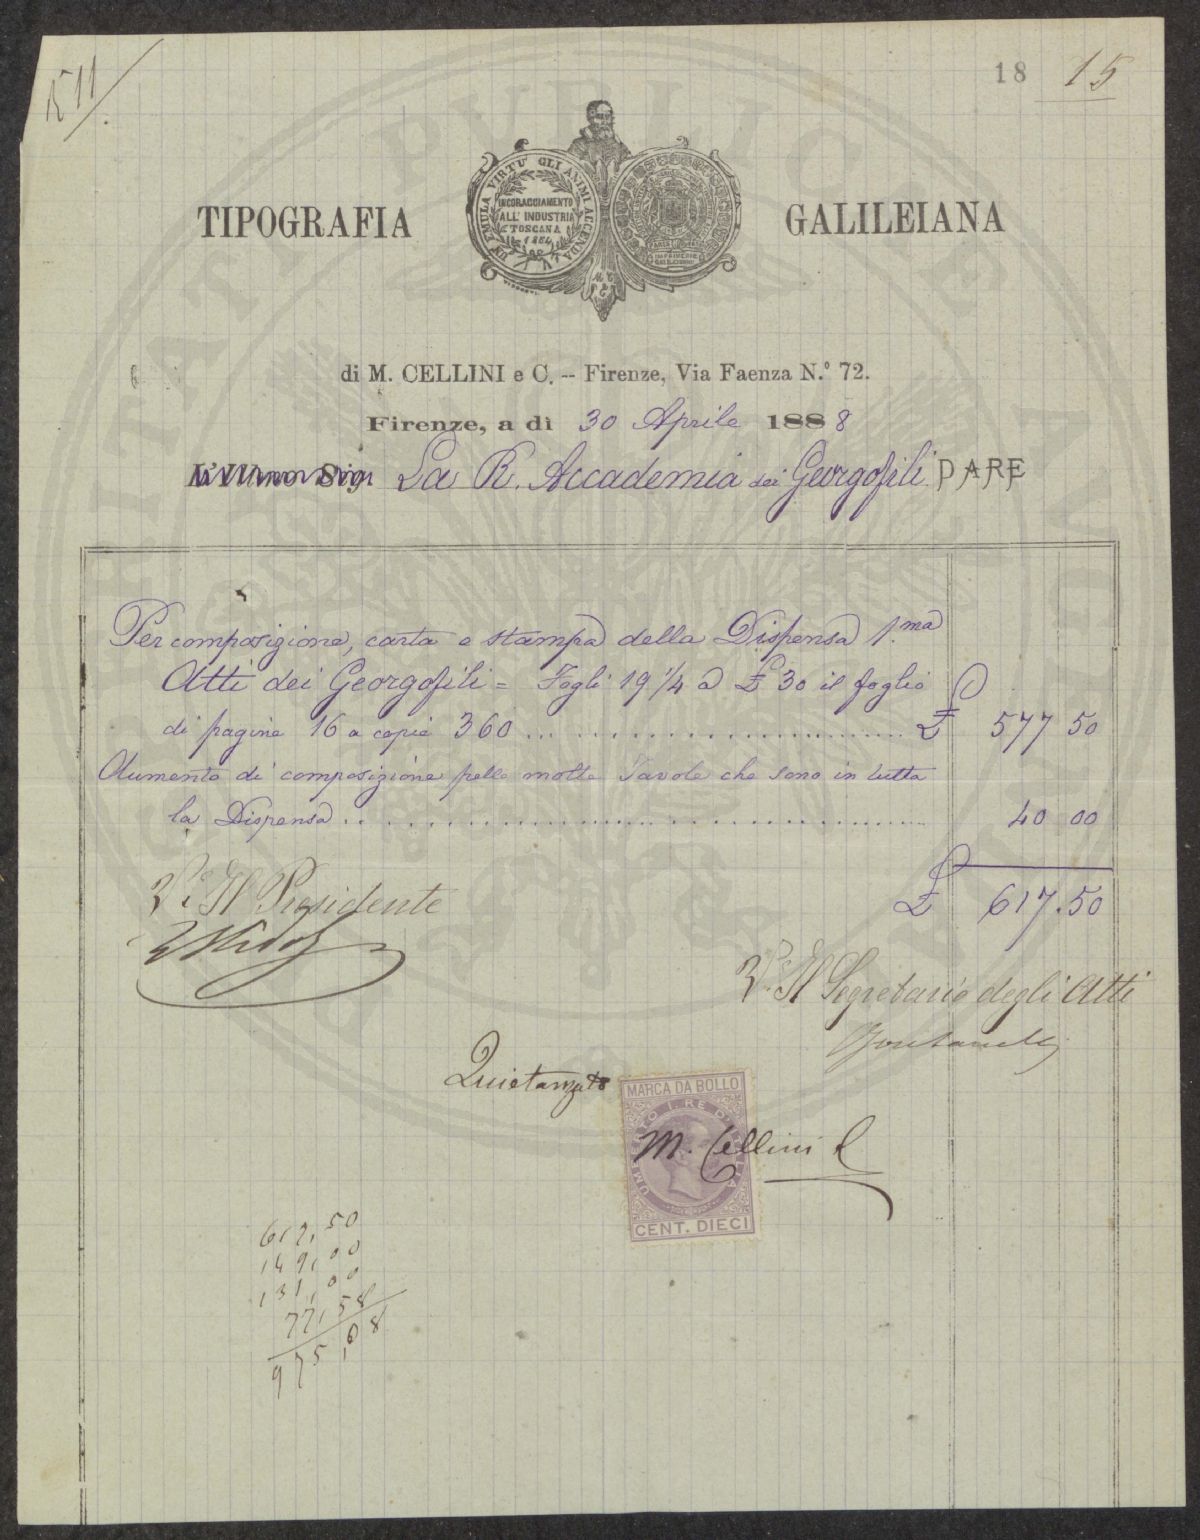 18 15
1511
TIPOGRAFIA GALILEIANA
AD EMULA VIRTU' GLI ANIMI ACCENDA
INCORAGGIAMENTO
ALL' INDUSTRIA
TOSCANA
1854
di M. CELLINI e C. -- Firenze, Via Faenza N.° 72.
Firenze, a dì 30 Aprile 1888
La R. Accademia dei Georgofili DARE
Per composizione, carta e stampa della Dispensa 1.ma
Atti dei Georgofili = Fogli 19 1/4 a £ 30 il foglio
di pagine 16 a copie 360 ... £ 577 50
Aumento di composizione pelle molte Tavole che sono in tutta
la Dispensa ... 40 00
£ 617.50
V.° Il Presidente
V.° Il Segretario degli Atti
Fontanelli
Quietanzato
MARCA DA BOLLO
UMBERTO I. RE D'ITALIA
M. Cellini
CENT. DIECI
617,50
149,00
131,00
77,58
975,08